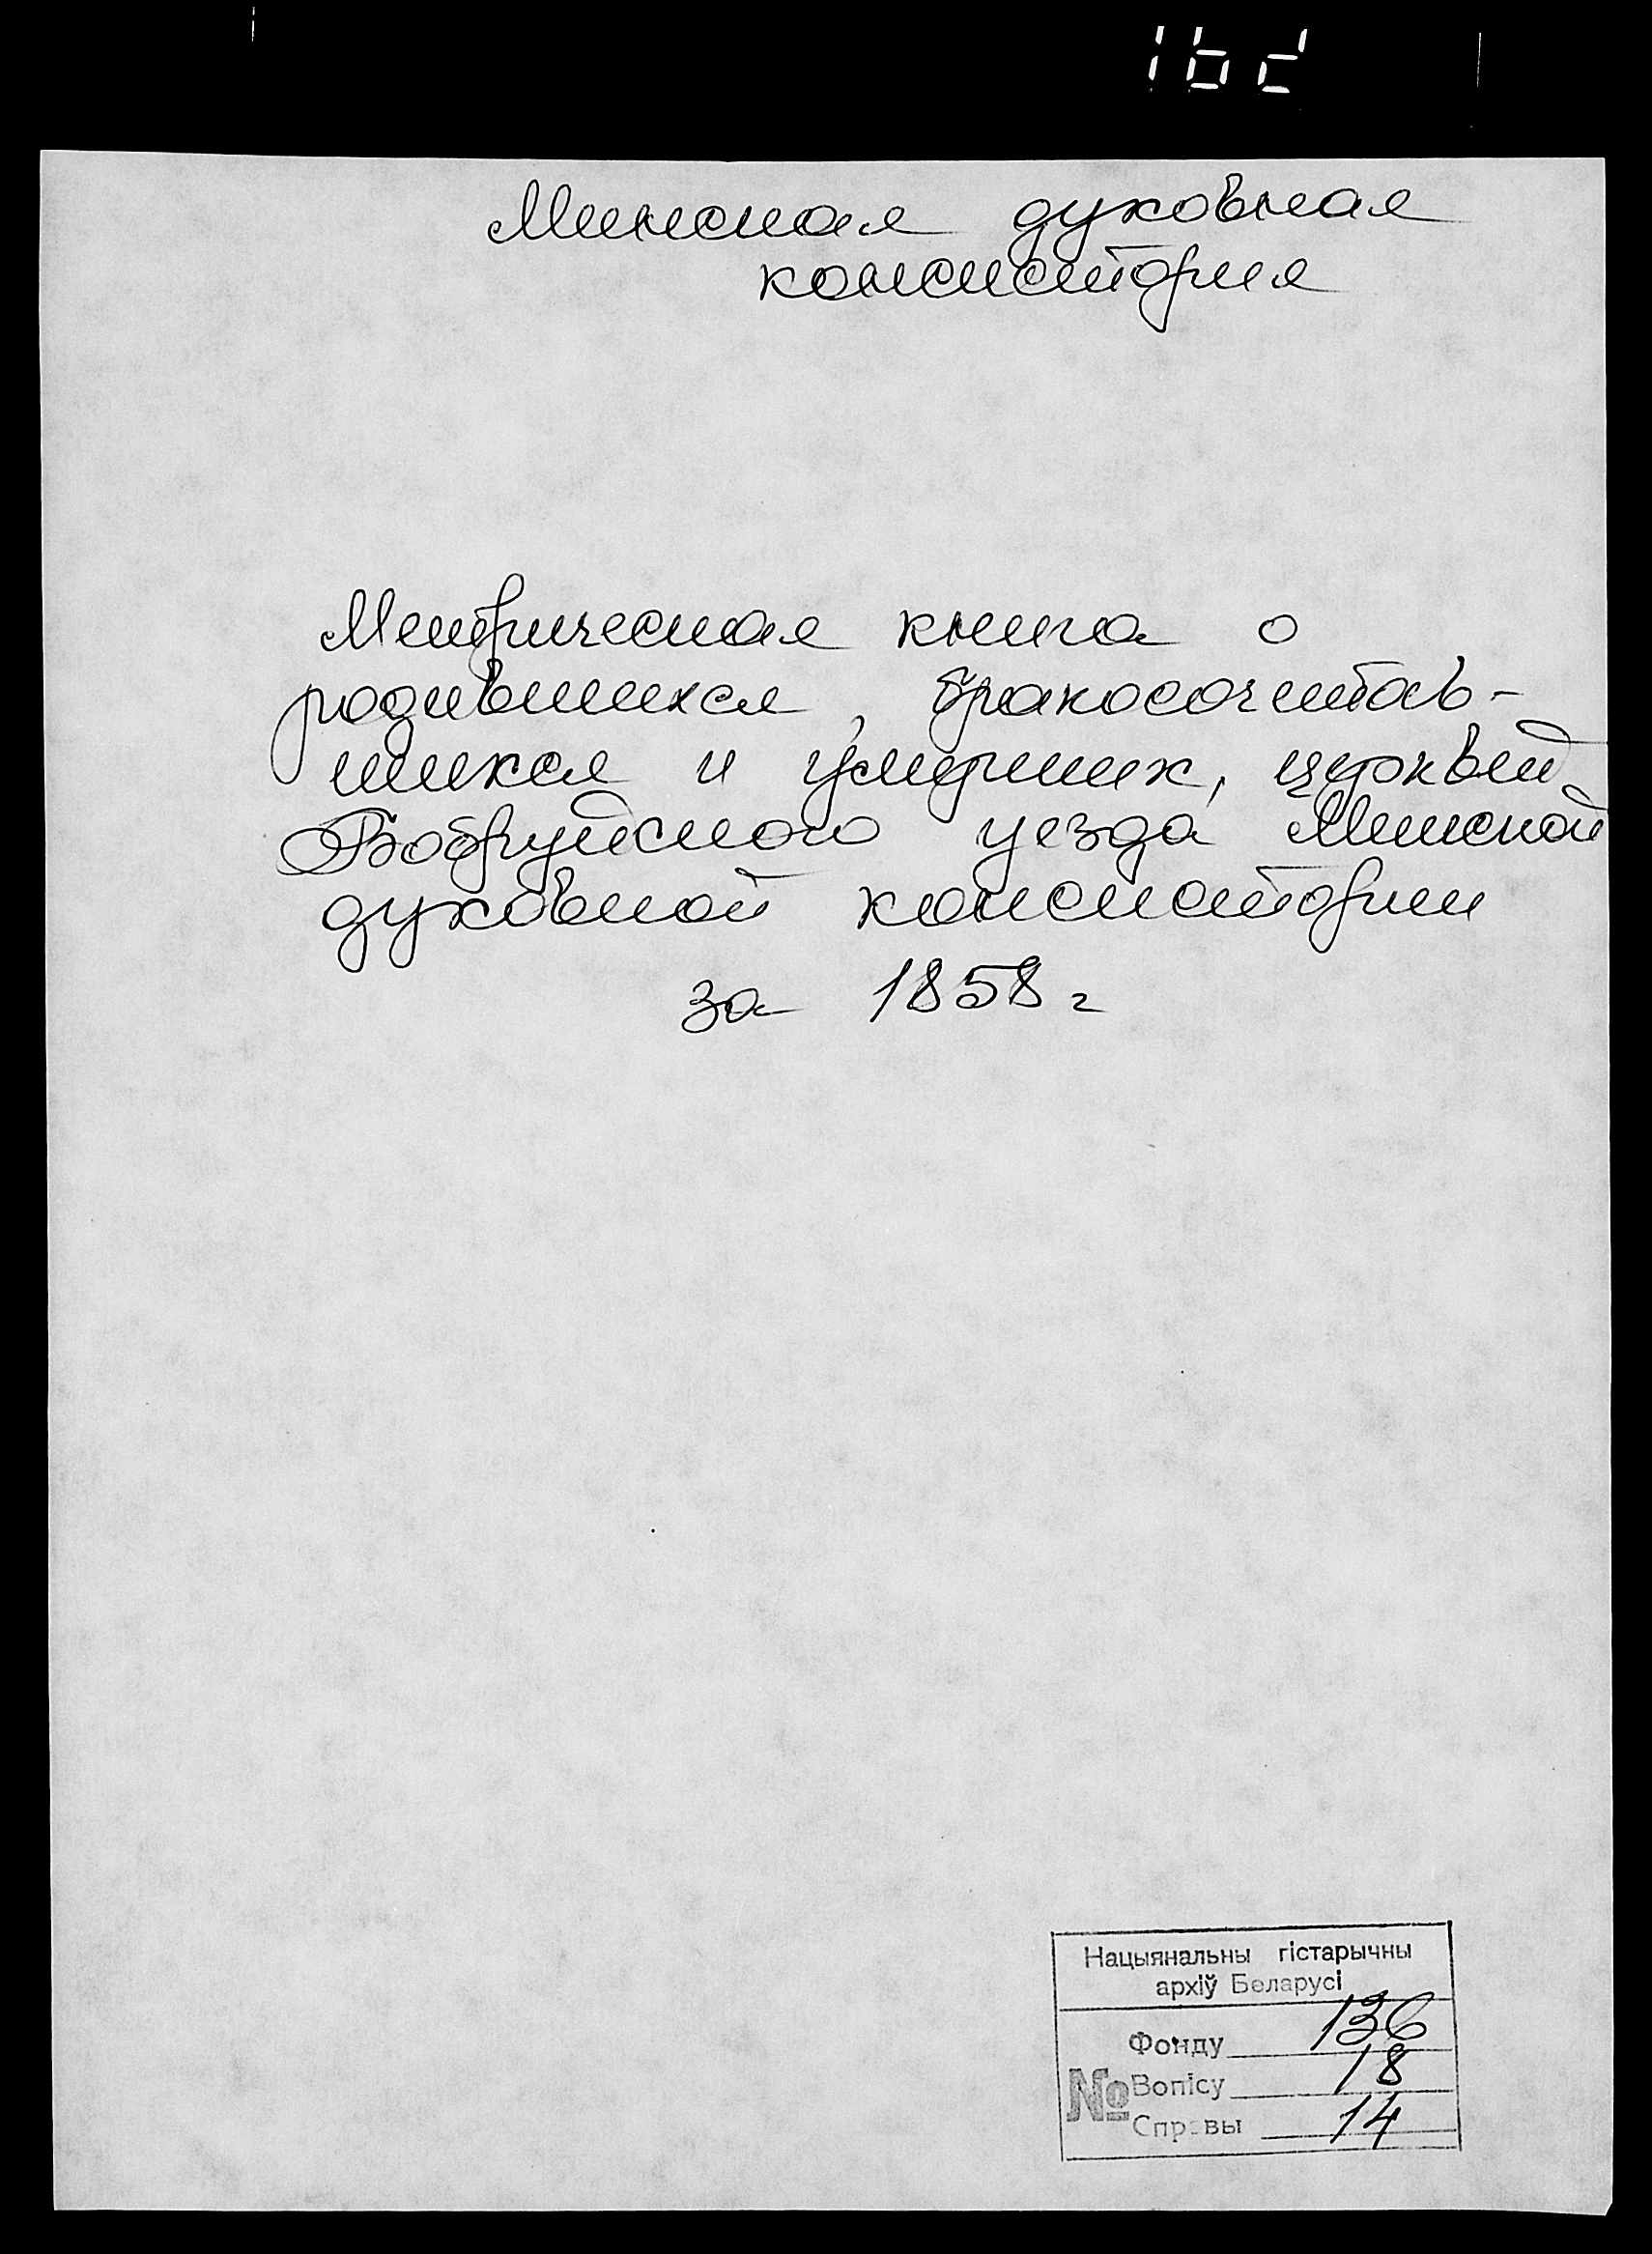 Минская духовная
консистория
Метрическая книга о
родившихся, бракосочетав-
шихся и умерших, церквей
Бобруйского уезда Минской
духовной консистории
за 1858 г
Нацыянальны гістарычны
архіў Беларусі
Фонду 136
№ Вопісу 18
Справы 14